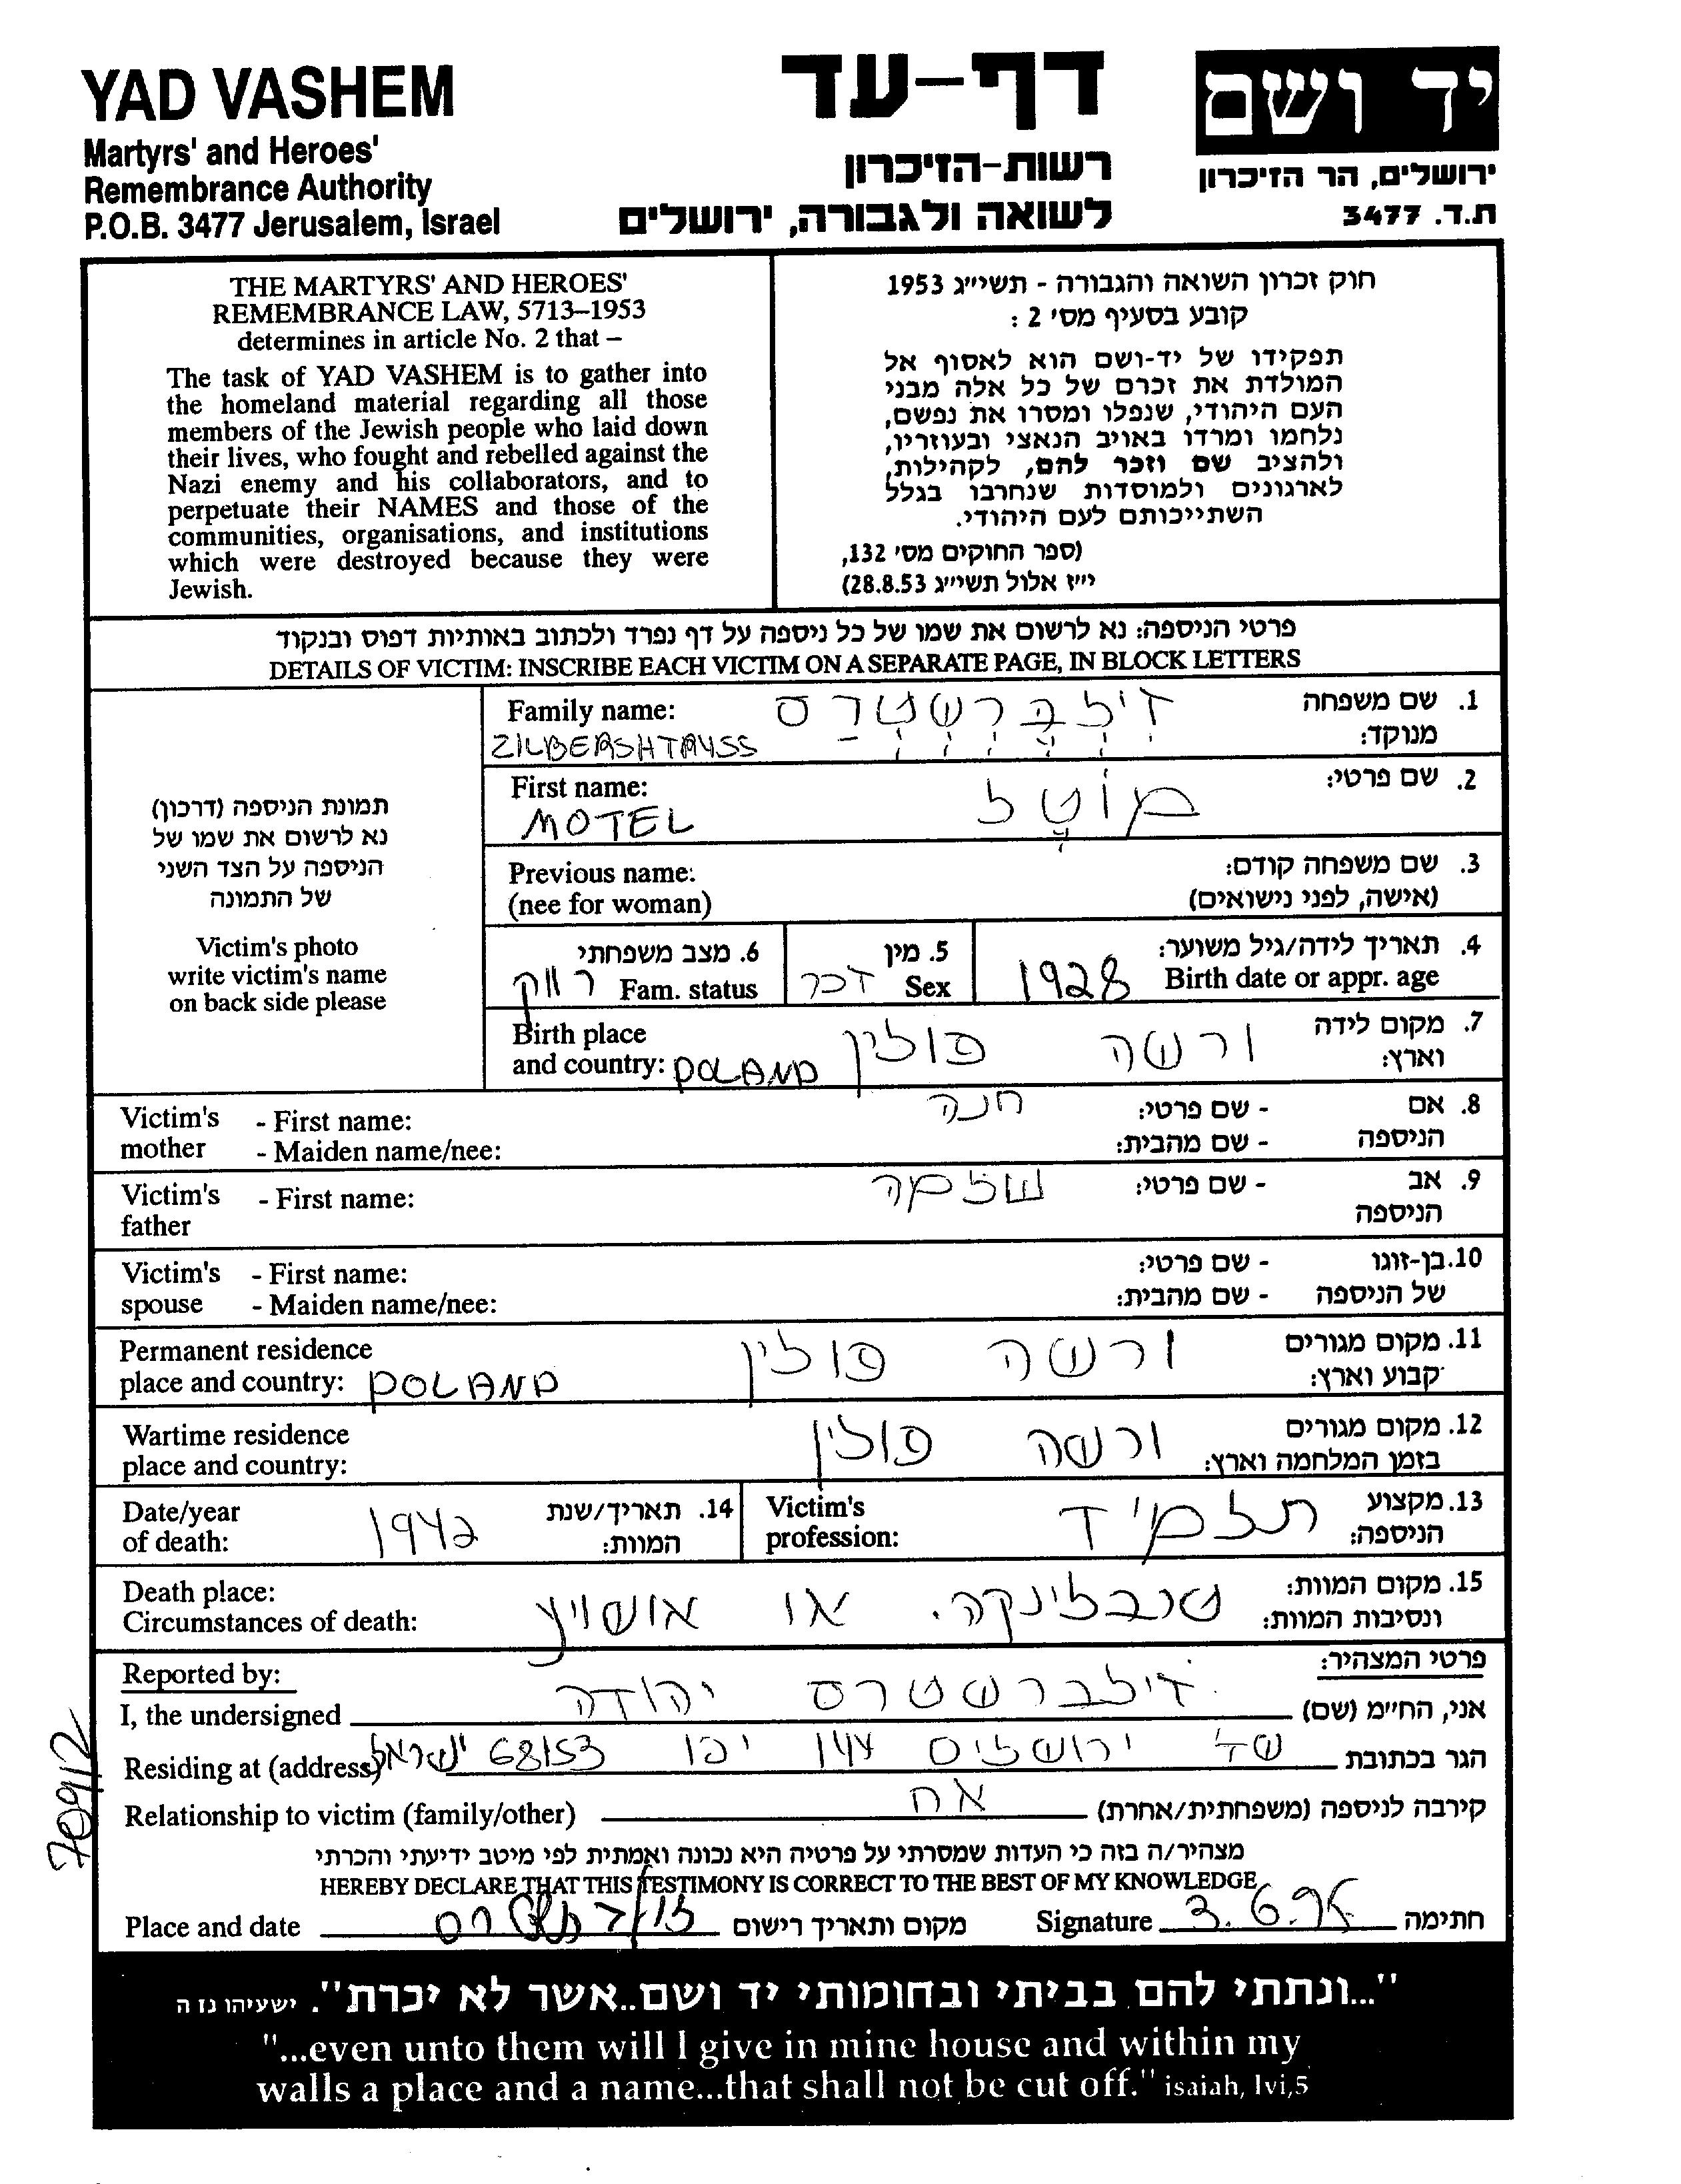 YAD VASHEM
Martyrs' and Heroes'
Remembrance Authority
P.O.B. 3477 Jerusalem, Israel
דף-עד
רשות-הזיכרון
לשואה ולגבורה, ירושלים
יד ושם
ירושלים, הר הזיכרון
ת.ד. 3477
THE MARTYRS' AND HEROES'
REMEMBRANCE LAW, 5713–1953
determines in article No. 2 that –
The task of YAD VASHEM is to gather into
the homeland material regarding all those
members of the Jewish people who laid down
their lives, who fought and rebelled against the
Nazi enemy and his collaborators, and to
perpetuate their NAMES and those of the
communities, organisations, and institutions
which were destroyed because they were
Jewish.
חוק זכרון השואה והגבורה - תשי״ג 1953
קובע בסעיף מס׳ 2 :
תפקידו של יד-ושם הוא לאסוף אל
המולדת את זכרם של כל אלה מבני
העם היהודי, שנפלו ומסרו את נפשם,
נלחמו ומרדו באויב הנאצי ובעוזריו,
ולהציב שם וזכר להם, לקהילות,
לארגונים ולמוסדות שנחרבו בגלל
השתייכותם לעם היהודי.
(ספר החוקים מס׳ 132,
י״ז אלול תשי״ג 28.8.53)
פרטי הניספה: נא לרשום את שמו של כל ניספה על דף נפרד ולכתוב באותיות דפוס ובנקוד
DETAILS OF VICTIM: INSCRIBE EACH VICTIM ON A SEPARATE PAGE, IN BLOCK LETTERS
תמונת הניספה (דרכון)
נא לרשום את שמו של
הניספה על הצד השני
של התמונה
Victim's photo
write victim's name
on back side please
1. שם משפחה זילברשטרס Family name:
מנוקד: ZILBERSHTRYSS
2. שם פרטי: מוטל First name:
MOTEL
3. שם משפחה קודם: Previous name:
(אישה, לפני נישואים) (nee for woman)
4. תאריך לידה/גיל משוער: 5. מין 6. מצב משפחתי
Birth date or appr. age 1928 Sex זכר Fam. status רווק
7. מקום לידה ורשה פולין Birth place
וארץ: and country: POLAND
8. אם - שם פרטי: חנה Victim's - First name:
הניספה - שם מהבית: mother - Maiden name/nee:
9. אב - שם פרטי: שלמה Victim's - First name:
הניספה father
10. בן-זוגו - שם פרטי: Victim's - First name:
של הניספה - שם מהבית: spouse - Maiden name/nee:
11. מקום מגורים ורשה פולין Permanent residence
קבוע וארץ: place and country: POLAND
12. מקום מגורים ורשה פולין Wartime residence
בזמן המלחמה וארץ: place and country:
13. מקצוע תלמיד Victim's
הניספה: profession:
14. תאריך/שנת 1942 Date/year
המוות: of death:
15. מקום המוות: טרבלינקה. או אושויץ Death place:
ונסיבות המוות: Circumstances of death:
פרטי המצהיר: Reported by:
אני, החי״מ (שם) זילברשטרס יהודה I, the undersigned
הגר בכתובת שד ירושלים 144 יפו 68153 ישראל Residing at (address)
קירבה לניספה (משפחתית/אחרת) אח Relationship to victim (family/other)
מצהיר/ה בזה כי העדות שמסרתי על פרטיה היא נכונה ואמתית לפי מיטב ידיעתי והכרתי
HEREBY DECLARE THAT THIS TESTIMONY IS CORRECT TO THE BEST OF MY KNOWLEDGE
Place and date זילברשטרס מקום ותאריך רישום Signature 3.6.95 חתימה
709/12
"...ונתתי להם בביתי ובחומותי יד ושם..אשר לא יכרת". ישעיהו נז ה
"...even unto them will I give in mine house and within my
walls a place and a name...that shall not be cut off." isaiah, lvi,5